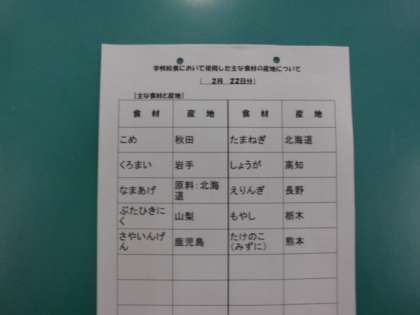 学校給食において使用した主な食材の産地について
( 2月 22日分)
[主な食材と産地]
食 材 産 地 食 材 産 地
こめ 秋田 たまねぎ 北海道
くろまい 岩手 しょうが 高知
なまあげ 原料:北海道 えりんぎ 長野
ぶたひきにく 山梨 もやし 栃木
さやいんげん 鹿児島 たけのこ(みずに) 熊本